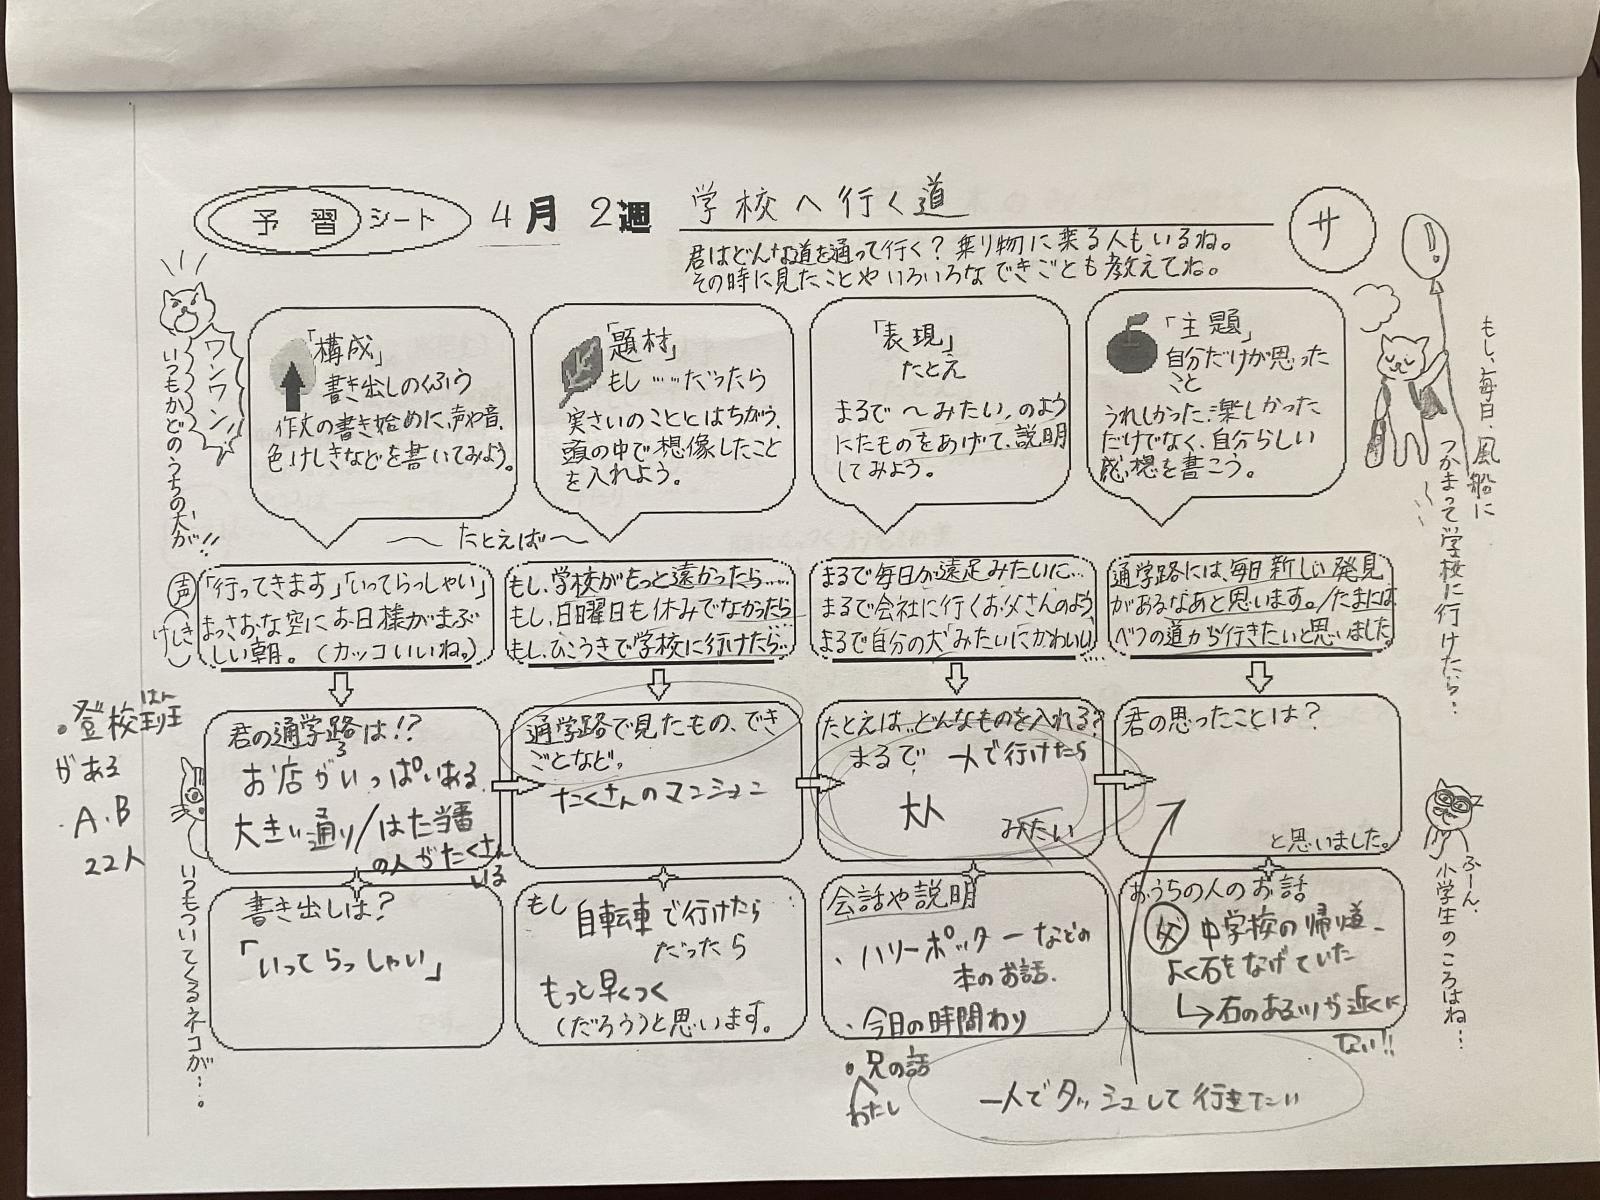 予習シート 4月 2週 学校へ行く道
サ
君はどんな道を通って行く？乗り物に乗る人もいるね。
その時に見たことやいろいろなできごとも教えてね。
ワンワン!
いつもかどのうちの犬が!!
「構成」
書き出しのくふう
作文の書き始めに、声や音、
色、けしきなどを書いてみよう。
「題材」
もし……だったら
実さいのこととはちがう、
頭の中で想像したこと
を入れよう。
「表現」
たとえ
まるで〜みたい。のよう
にたものをあげて、説明
してみよう。
「主題」
自分だけが思った
こと
うれしかった、楽しかった
だけでなく、自分らしい
感想を書こう。
!
もし、毎日、風船に
つかまって学校に行けたら…
〜たとえば〜
声
けしき
「行ってきます」「いってらっしゃい」
まっさおな空にお日様がまぶ
しい朝。（カッコいいね。）
もし、学校がもっと遠かったら……
もし、日曜日も休みでなかったら
もし、ひこうきで学校に行けたら…
まるで毎日が遠足みたいに…
まるで会社に行くお父さんのよう
まるで自分の犬みたいにかわいい…
通学路には、毎日新しい発見
があるなあと思います。/たまには
べつの道から行きたいと思いました。
・登校班
はん
がある
・A、B
22人
君の通学路は!?
ろ
お店がいっぱいある
大きい通り/はた当番
の人がたくさん
いる
通学路で見たもの、でき
ごとなど。
たくさんのマンション
たとえは…どんなものを入れる？
まるで 一人で行けたら
大人
みたい
君の思ったことは？
と思いました。
いつもついてくるネコが…
書き出しは？
「いってらっしゃい」
もし 自転車で行けたら
だったら
もっと早くつく
（だろう）と思います。
会話や説明
・ハリーポッターなどの
本のお話。
・今日の時間わり
・兄の話
わたし
おうちの人のお話
父 中学校の帰り道、
よく石をなげていた
→石のある川が近くに
ない!!
ふーん、
小学生のころはね…
一人でダッシュして行きたい